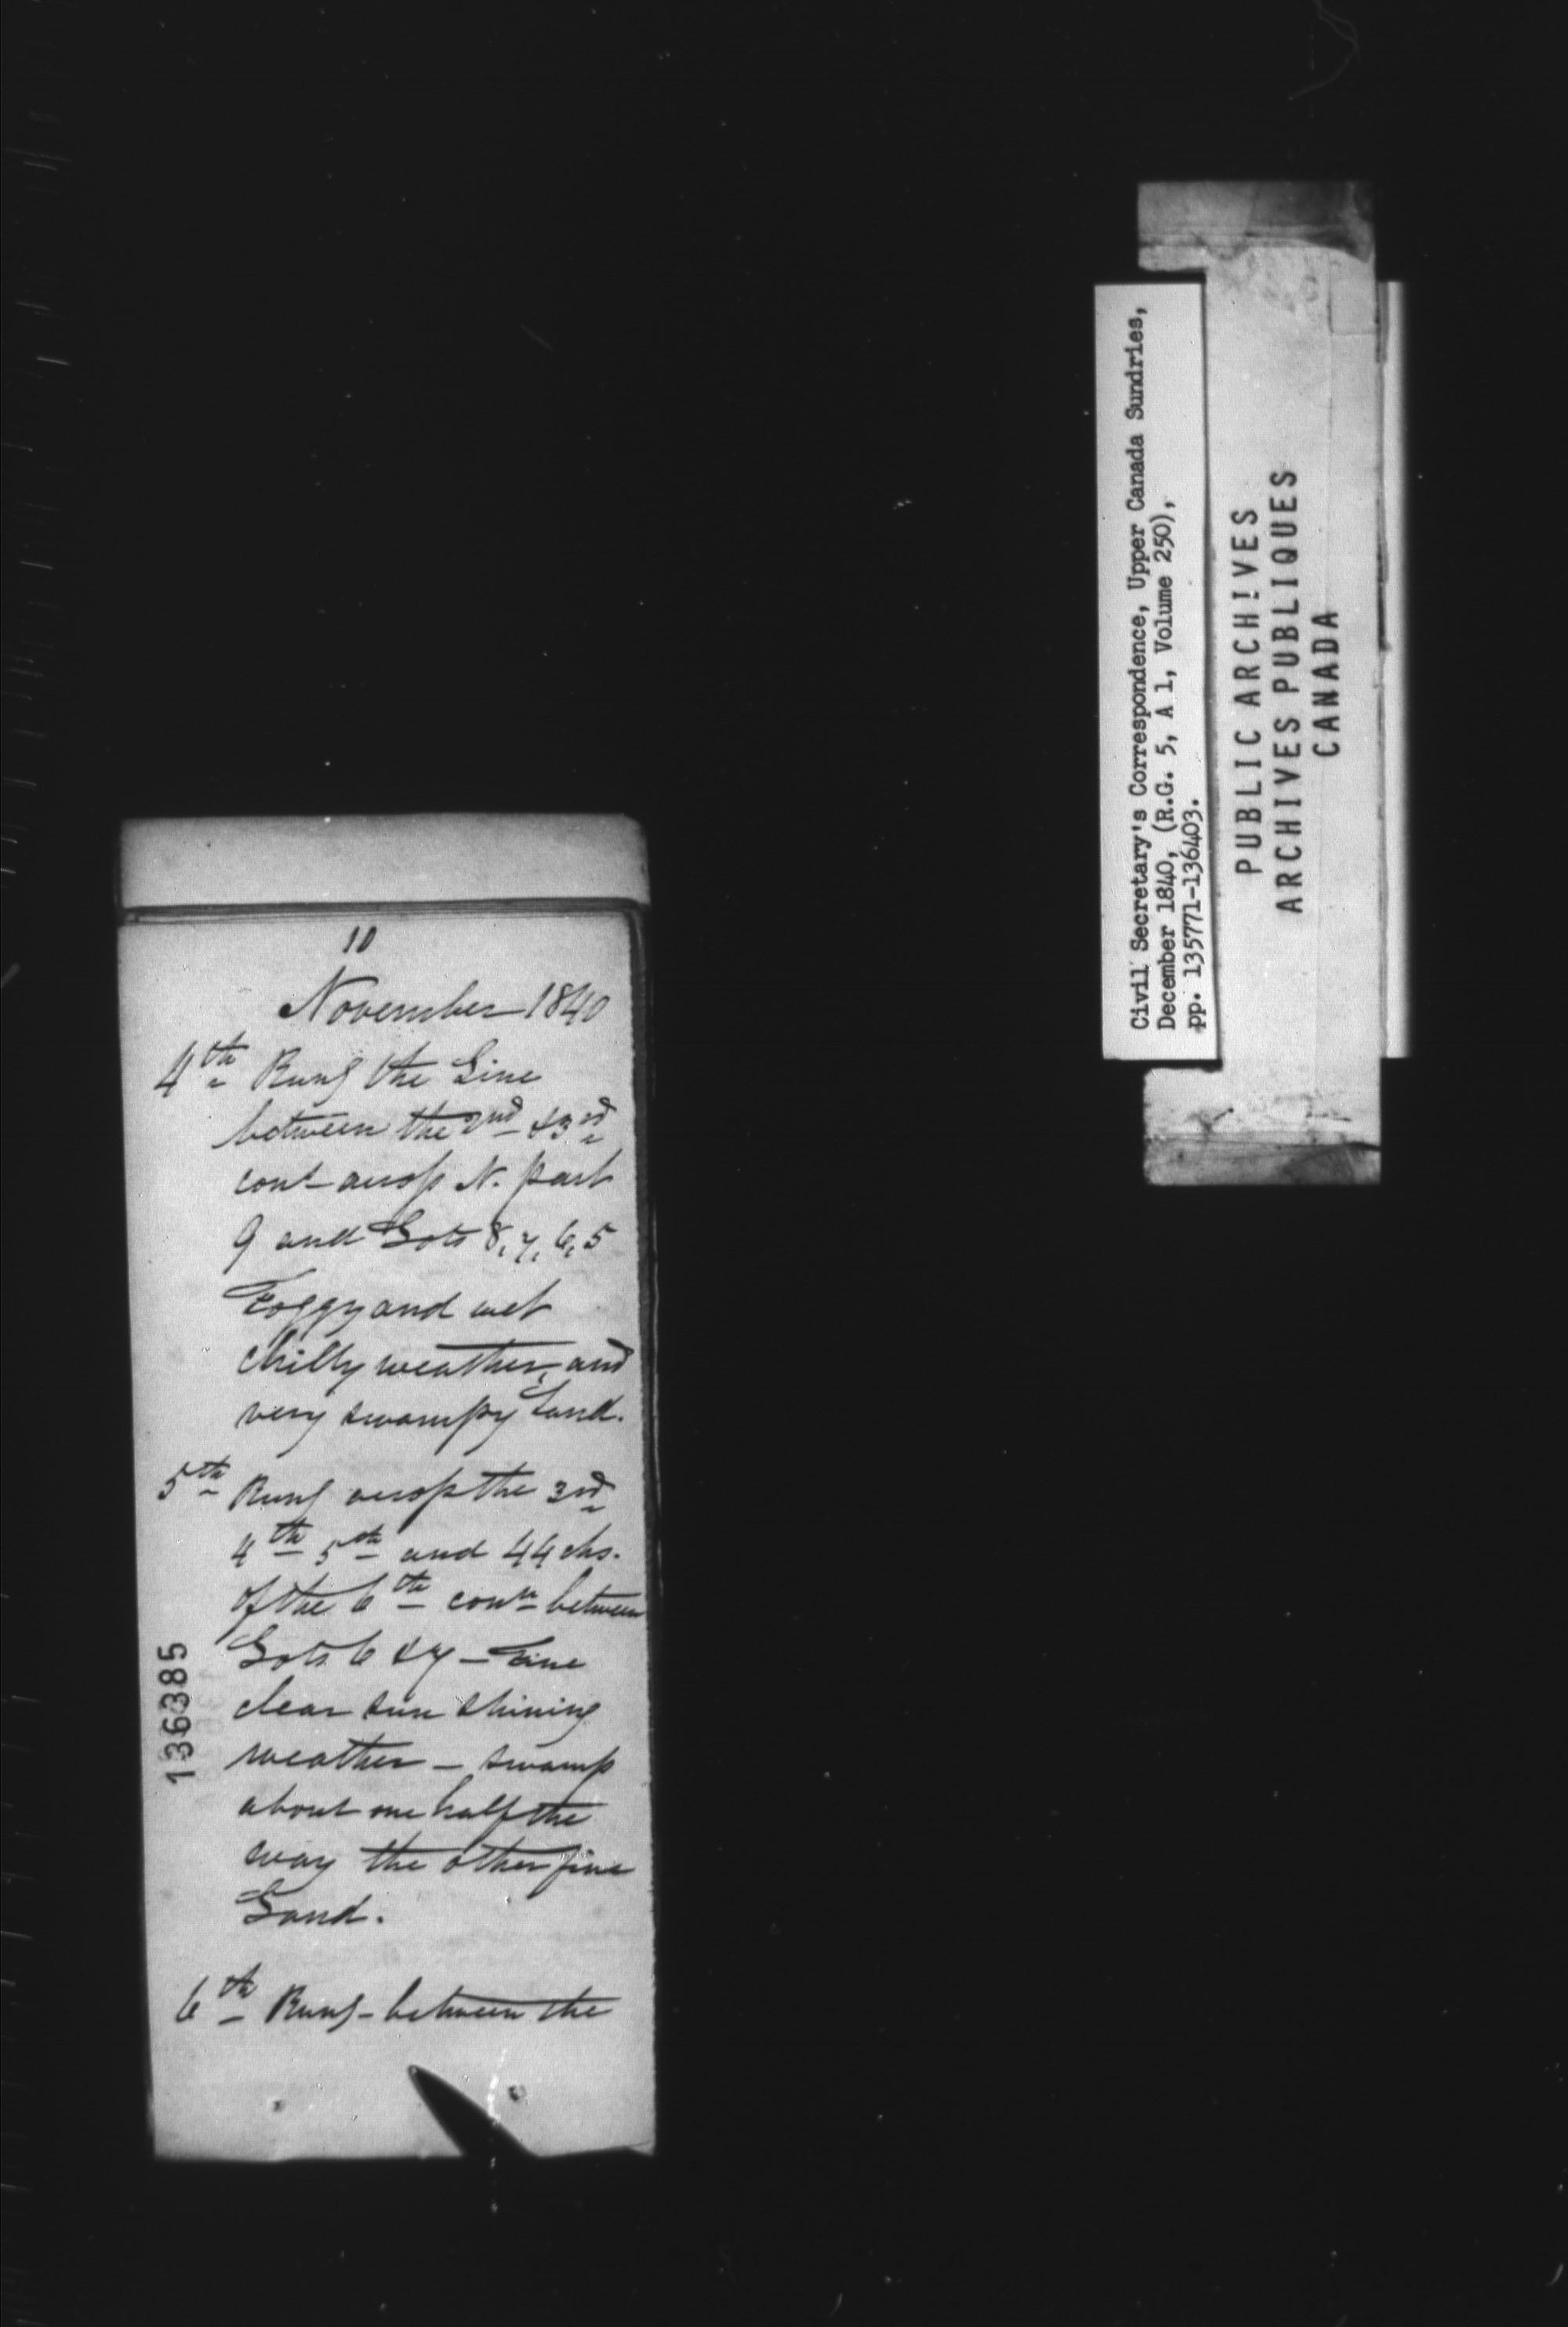 10
November 1840
4th Rung the Line
between the 2nd & 3rd
con across N. part
9 and Lots 8, 7, 6, 5
Foggy and wet
chilly weather, and
very swampy Land.
5th Rung across the 3rd
4th 5th and 44 chs.
of the 6th conn between
Lots 6 & 7 — Fine
clear sun shining
weather — swamp
about one half the
way the other fine
Land.
6th Rung - between the
136385
Civil Secretary's Correspondence, Upper Canada Sundries,
December 1840, (R.G. 5, A 1, Volume 250),
pp. 135771-136403.
PUBLIC ARCHIVES
ARCHIVES PUBLIQUES
CANADA